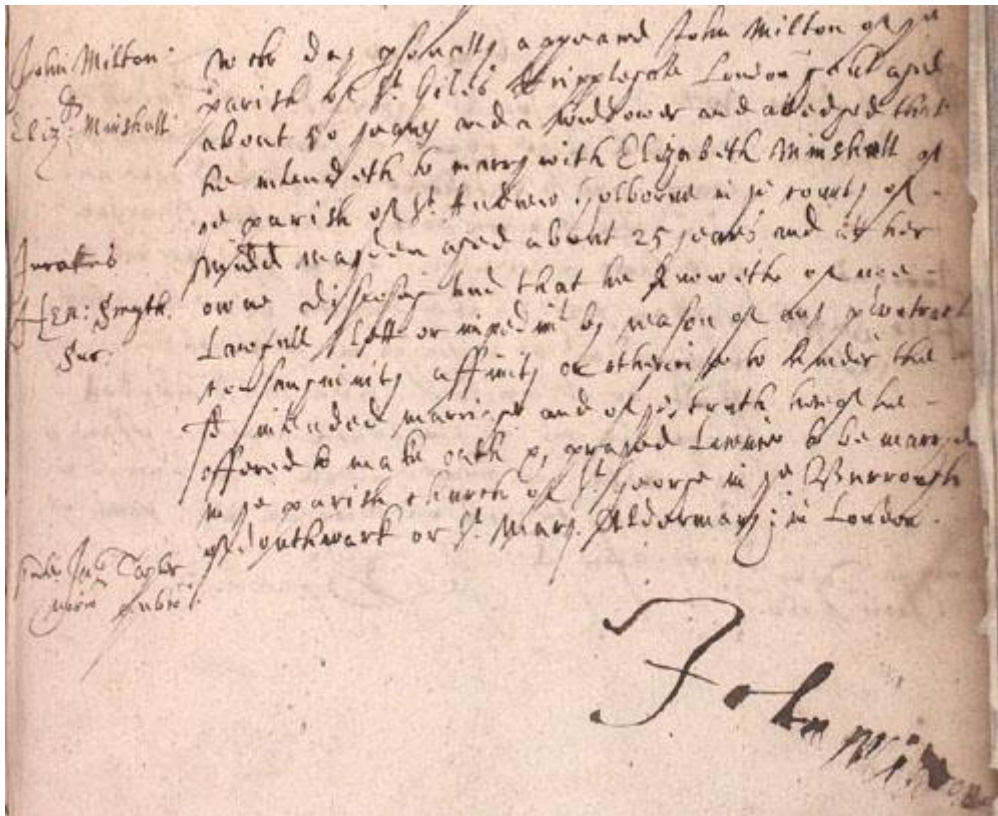 John Milton
&
Eliz: Minshull
Juratus
Hen: Smyth
Sur.
Taylor
wch day psonally appeared John Milton of ye
parish of St. Giles Cripplegate London gent aged
about 50 yeares and a Widdower and alledged that
he intendeth to marry with Elizabeth Minshull of
ye parish of St. Andrew Holborne in ye county of
Midd Mayden aged about 25 yeares and att her
owne disposing and that he knoweth of noe
Lawfull Lett or impedimt by reason of any pcontract
consanguinity affinity or otherwise to hinder the
sd intended marriage and of ye truth hereof he
offered to make oath & prayed Licence to be maryed
in ye parish church of St. George in ye Burrough
of Southwark or St. Mary Aldermary in London.
John Milton